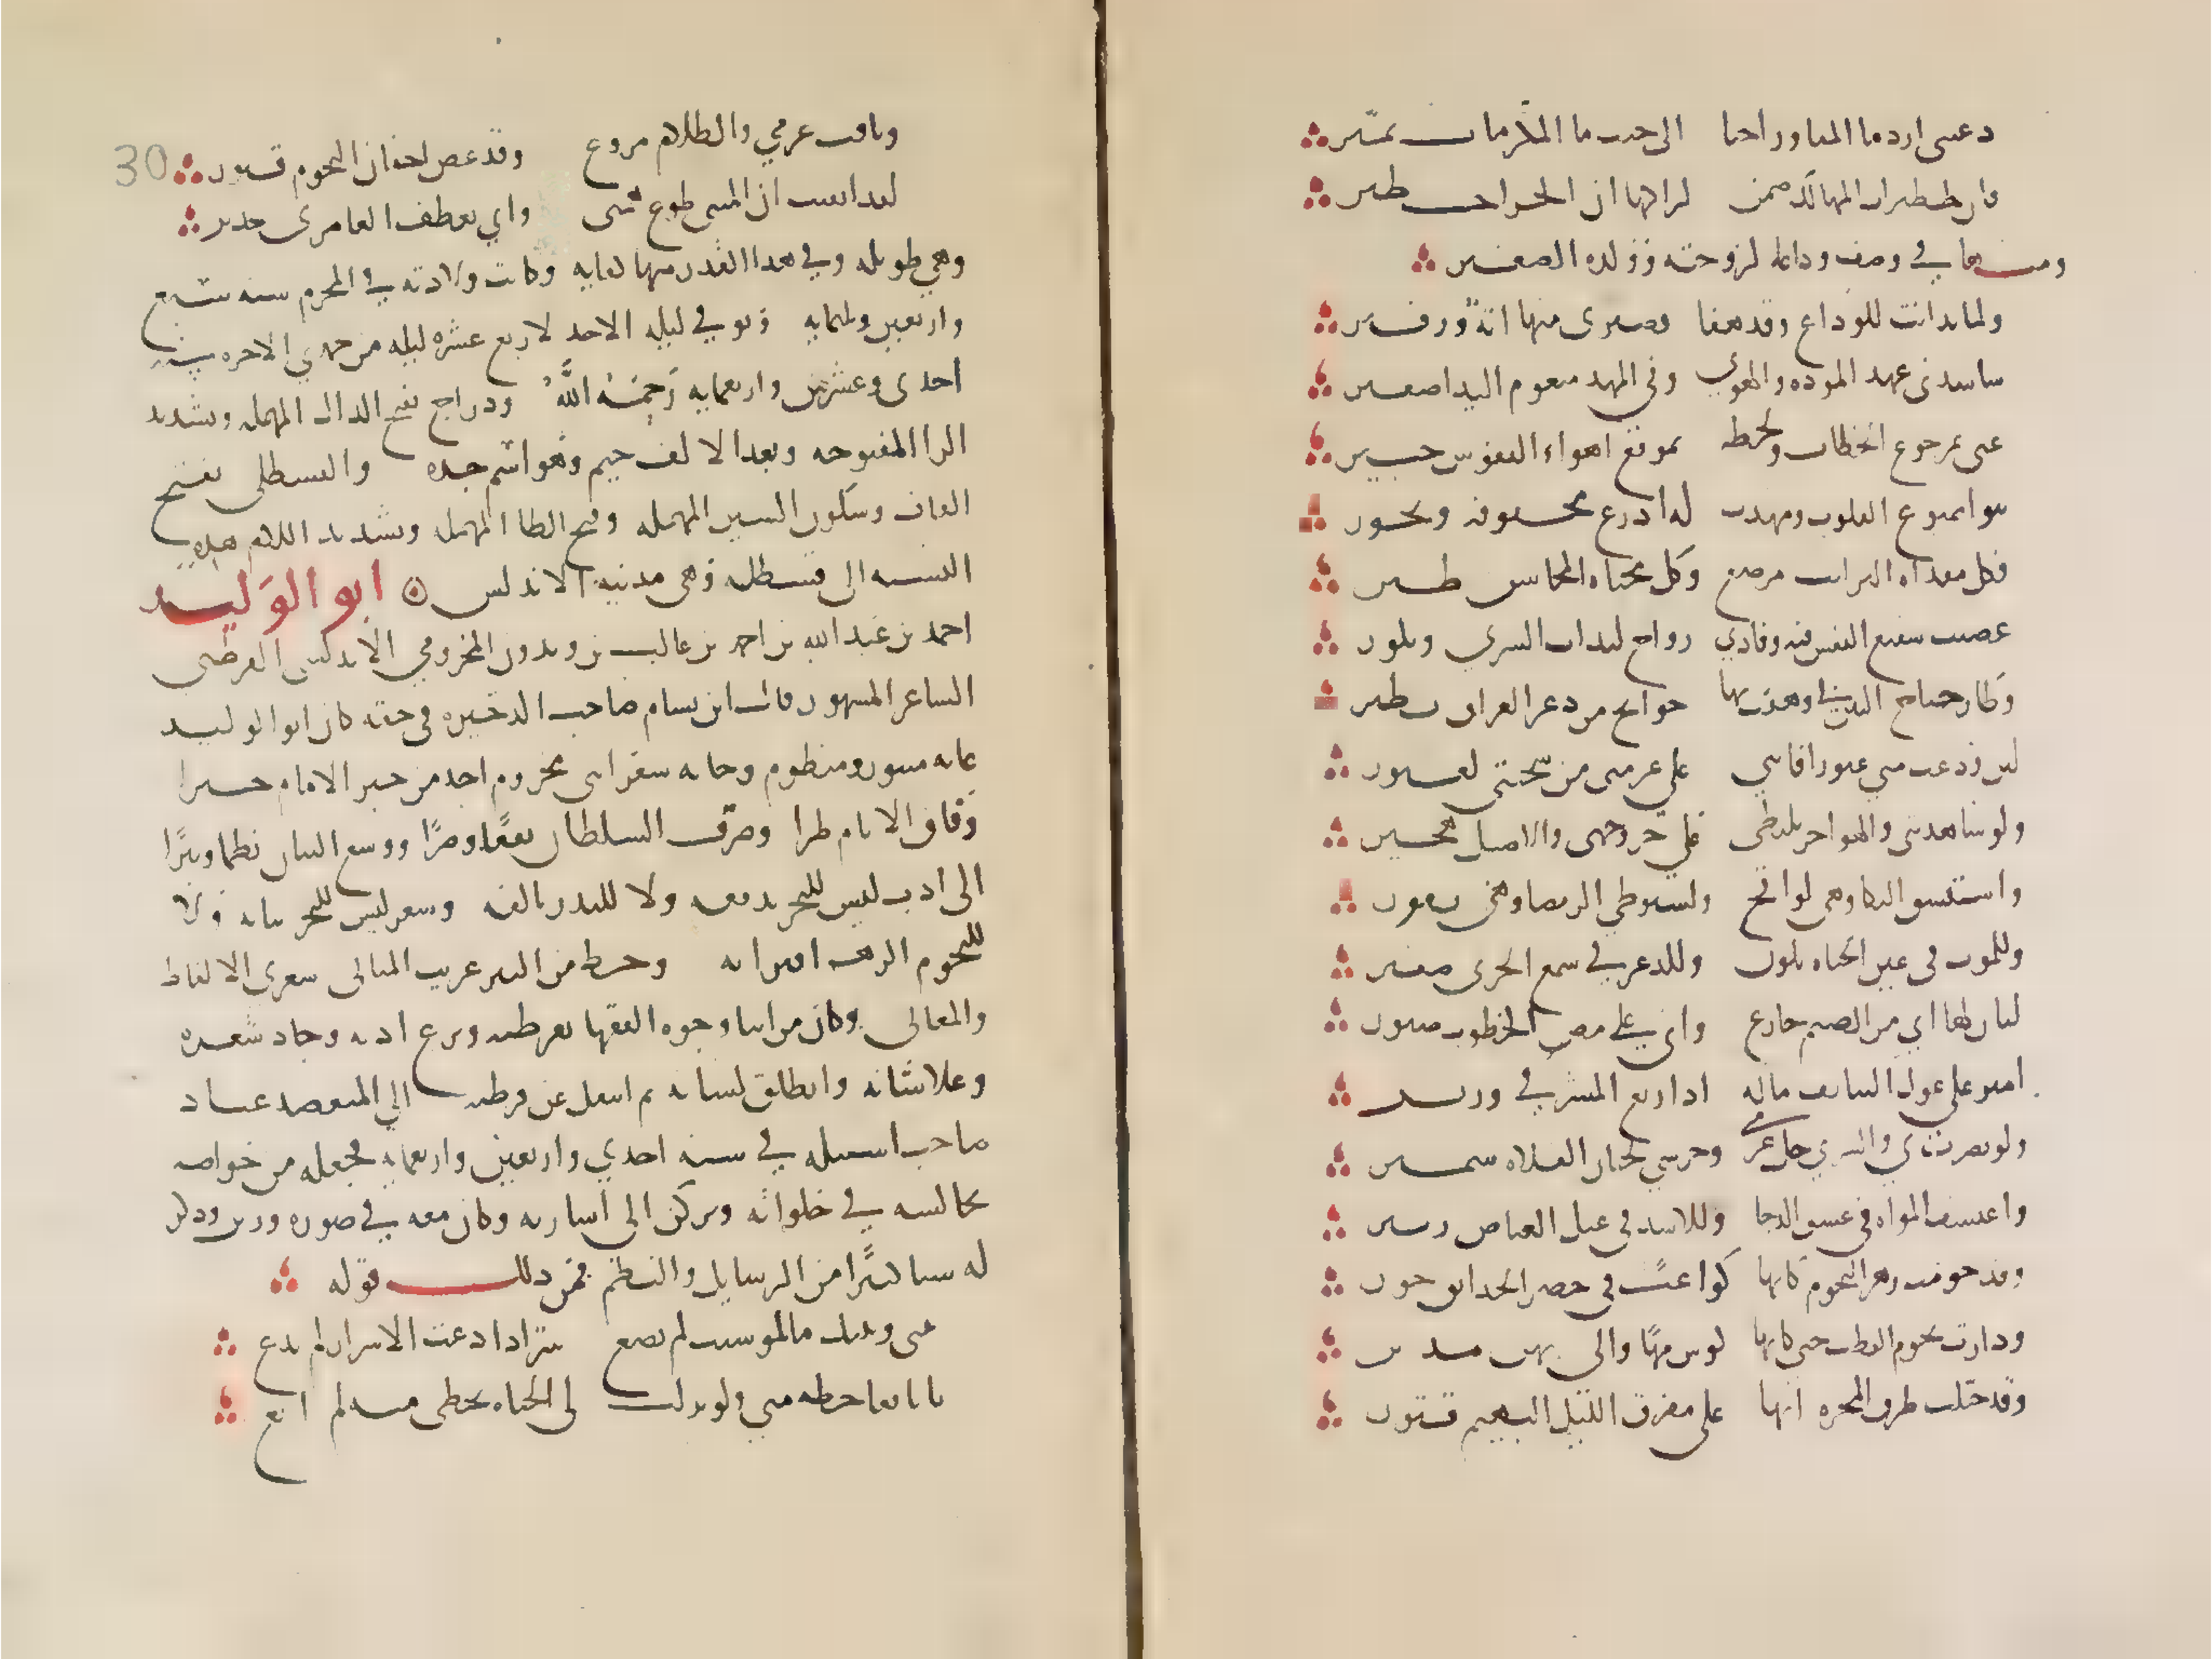 دعيني ارد ما المفاوز اجنا الى حيث ما المكرمات نمير
فان خطيرات المهالك ضمن لراكبها ان الجزا خطير
ومنها في وصف وداعه لزوجته وولده الصغير
ولما تدانت للوداع وقد هفا بصبري منها انة وزفير
تناشدني عهد المودة والهوى وفي المهد مبغوم النداء صغير
عيي بمرجوع الخطاب ولحظه بموقع اهواء النفوس خبير
تبوا ممنوع القلوب ومهدت له اذرع محفوفة ونحور
فكل مفداه الترايب مرضع وكل محياه المحاسن ظير
عصيت شفيع النفس فيه وقادني رواح لتداب السرى وبكور
وطار جناح البين بي وهفت بها جوانح من ذعر الفراق تطير
لين ودعت مني غيورا فانني على عزمتي من شجوتها لغيور
ولو شاهدتني والهواجر تلتظي علي حر وجهي والاصيل هجير
واستنشق النكبا وهي لوافح واستوطي الرمضا وهي تفور
وللموت في عين الجبان تلون وللذعر في سمع الجري صفير
لبان لها اني من الضيم جازع واني على مض الخطوب صبور
امير على غول التنايف ماله اذا ريع الا المشرفي وزير
ولو بصرت بي والسرى جل عزمي وجرسي لجنان الفلاة سمير
واعتسف الموماة في غسق الدجا وللاسد في غيل الغياض زير
وقد حومت زهر النجوم كانها كواعب في خضر الحدايق حور
ودارت نجوم القطب حتى كانها كووس مها والى بهن مدير
وقد خيلت طرق المجره انها على مفرق الليل البهيم قتير
30
وثاقب عزمي والظلام مروع وقد غض اجفان النجوم فتور
لقد ايقنت ان المنى طوع همتي واني بعطف العامري جدير
وهي طويله وفي هذا القدر منها كفايه وكانت ولادته في المحرم سنه سبع
واربعين وثلثمايه وتوفي ليله الاحد لاربع عشره ليله من جمدي الاخره سنه
احدى وعشرين واربعمايه رحمه الله ودراج بفتح الدال المهمله وتشديد
الرا المفتوحه وبعد الالف جيم وهو اسم جده والقسطلي بفتح
القاف وسكون السين المهمله وفتح الطا المهمله وتشديد اللام هذه
النسبه الى قسطله وهي مدنيه الاندلس ابو الوليد
احمد بن عبد الله بن احمد بن غالب بن زيدون المخزومي الاندلسي القرطبي
الشاعر المشهور قال ابن بسام صاحب الذخيره في حقه كان ابو الوليد
غايه منثور ومنظوم وخاتمه شعرا بني مخزوم احد من جر الايام جرا
وفاق الانام طرا وصرف السلطان نفعا وضرا ووسع البيان نظما ونثرا
الى ادب ليس للبحر تدفقه ولا للبدر تالقه وشعر ليس للسحر بيانه ولا
للنجوم الزهر اقترانه وحظ من النثر غريب المباني شعري الالفاظ
والمعاني وكان من ابنا وجوه الفقها بقرطبه وبرع ادبه وجاد شعره
وعلا شانه وانطلق لسانه ثم انتقل عن قرطبه الي المعتضد عباد
صاحب اشبيليه في سنه احدي واربعين واربعمايه فجعله من خواصه
يجالسه في خلواته ويركن الى اشارته وكان معه في صوره وزير وذكر
له شيا كثيرا من الرسايل والنظم فمن ذلك قوله
بيني وبينك ما لو شيت لم يضع سر اذا ذاعت الاسرار لم يذع
يا بايعا حظه مني ولو بذلت لي الحياه بحظي منه لم ابع